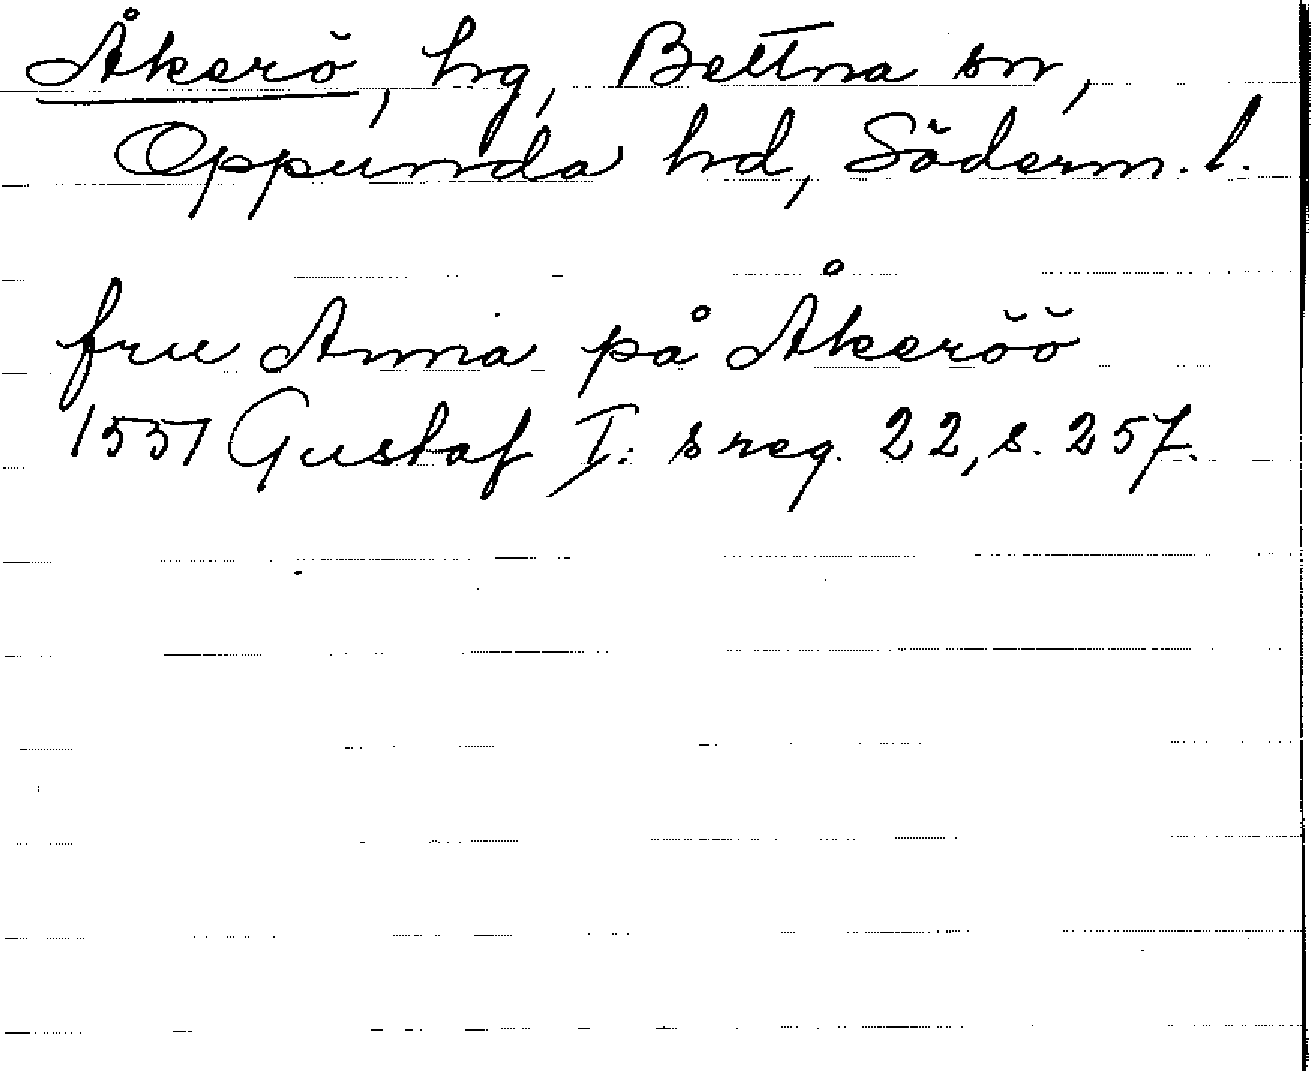 Åkerö, hg, Bettna sn,
Oppunda hd, Söderm. l.
frue Anna på Åkeröö
1551 Gustaf I: s reg. 22, s. 257.